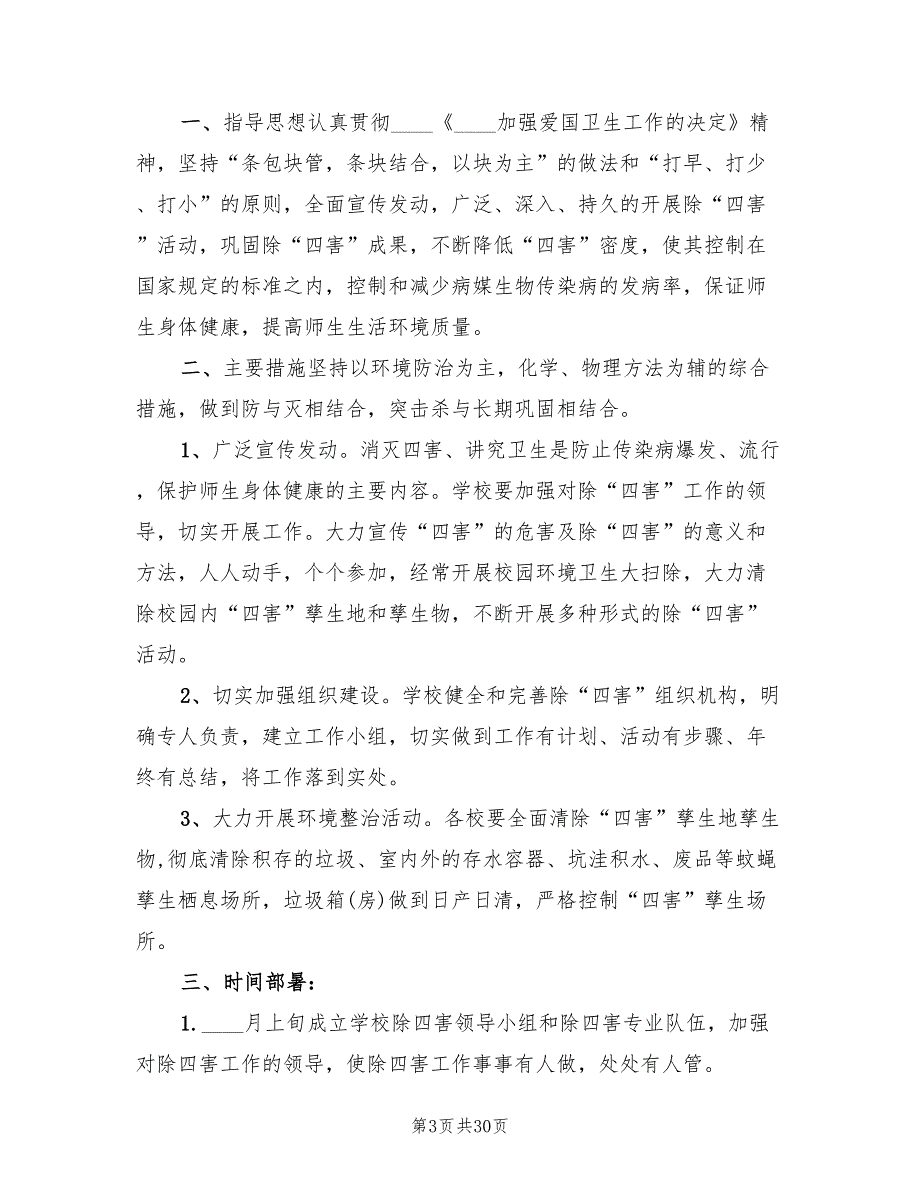 一、指导思想认真贯彻____《____加强爱国卫生工作的决定》精
神，坚持“条包块管，条块结合，以块为主”的做法和“打早、打少
、打小”的原则，全面宣传发动，广泛、深入、持久的开展除“四害
”活动，巩固除“四害”成果，不断降低“四害”密度，使其控制在
国家规定的标准之内，控制和减少病媒生物传染病的发病率，保证师
生身体健康，提高师生生活环境质量。
二、主要措施坚持以环境防治为主，化学、物理方法为辅的综合
措施，做到防与灭相结合，突击杀与长期巩固相结合。
1、广泛宣传发动。消灭四害、讲究卫生是防止传染病爆发、流行
，保护师生身体健康的主要内容。学校要加强对除“四害”工作的领
导，切实开展工作。大力宣传“四害”的危害及除“四害”的意义和
方法，人人动手，个个参加，经常开展校园环境卫生大扫除，大力清
除校园内“四害”孳生地和孳生物，不断开展多种形式的除“四害”
活动。
2、切实加强组织建设。学校健全和完善除“四害”组织机构，明
确专人负责，建立工作小组，切实做到工作有计划、活动有步骤、年
终有总结，将工作落到实处。
3、大力开展环境整治活动。各校要全面清除“四害”孳生地孳生
物,彻底清除积存的垃圾、室内外的存水容器、坑洼积水、废品等蚊蝇
孳生栖息场所，垃圾箱(房)做到日产日清，严格控制“四害”孳生场
所。
三、时间部署：
1.____月上旬成立学校除四害领导小组和除四害专业队伍，加强
对除四害工作的领导，使除四害工作事事有人做，处处有人管。
第3页共30页